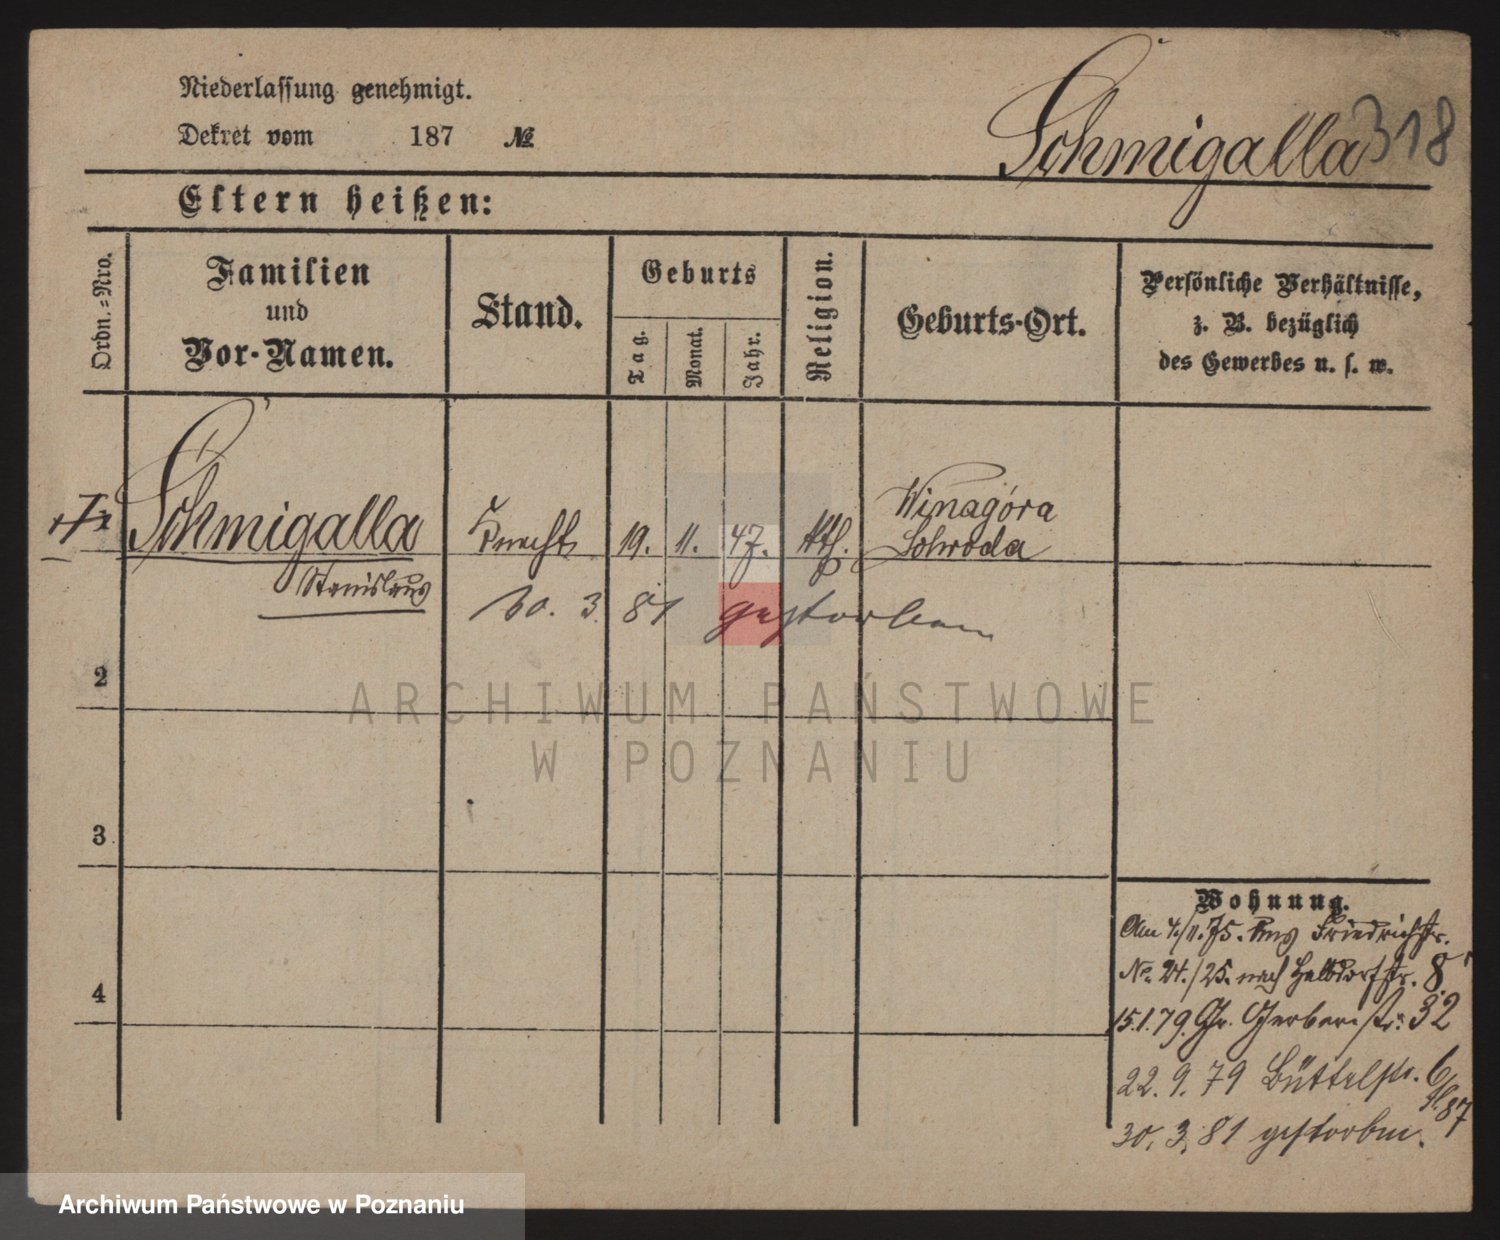 Niederlassung genehmigt.
Dekret vom 187 №
Schmigalla 318
Eltern heißen:
Ordn.=Nro.
Familien
und
Vor-Namen.
Stand.
Geburts
Tag.
Monat.
Jahr.
Religion.
Geburts-Ort.
Persönliche Verhältnisse,
z. B. bezüglich
des Gewerbes u. s. w.
Schmigalla Knecht 19. 11. 47. Kth. Winagóra
Schroda
Stanislaus
30. 3. 81 gestorben
2
3
4
Wohnung.
Am 4./11. 75. aus Friedrichstr.
No. 24./25. nach Halbdorfstr. 8
15.1.79. Gr. Gerberstr. 32
22. 9. 79 Büttelstr. 6
30. 3. 81 gestorben.
ARCHIWUM PAŃSTWOWE
W POZNANIU
Archiwum Państwowe w Poznaniu